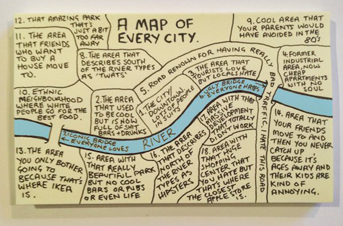 A MAP OF
EVERY CITY.
12. THAT AMAZING PARK
THAT'S
JUST A BIT
TOO FAR
AWAY
11. THE AREA
THAT FRIENDS
WHO WANT
TO BUY A
HOUSE MOVE
TO.
10. ETHNIC
NEIGHBOURHOOD
WHERE WHITE
PEOPLE GO FOR THE
BEST FOOD.
8. THE AREA THAT
DESCRIBES SOUTH
OF THE RIVER TYPES
AS 'TWATS'
7. THE AREA
THAT USED
TO BE
COOL
BUT IS NOW
FULL OF SHIT
BARS + DRINKS
THE CITY
DOWNTOWN
PEOPLE
5. ROAD RENOWN FOR HAVING REALLY BAD TRAFFIC. I HATE THIS ROAD
3. THE AREA THAT
TOURISTS LOVE
BUT LOCALS HATE
9. COOL AREA THAT
YOUR PARENTS WOULD
HAVE AVOIDED IN THE
80'S
4. FORMER
INDUSTRIAL
AREA, NOW
CHEAP
APARTMENTS
WITH
SOUL
ICONIC BRIDGE
EVERYONE LOVES
RIVER
BRIDGE
EVERYONE HATES
13. THE AREA
YOU ONLY BOTHER
GOING TO
BECAUSE THAT'S
WHERE IKEA
IS.
15. AREA WITH
THAT REALLY
BEAUTIFUL PARK
BUT NO COOL
BARS OR PUBS
OR EVEN LIFE
16. AREA THAT
DESCRIBES
NORTH OF
THE RIVER
TYPES AS
HIPSTERS
17. AREA WITH
THE NEW
DEVELOPMENT
THAT TOTALLY
DIDN'T WORK
18. AREA WITH
THAT HUGE
SHOPPING
CENTER THAT
YOU HATE
BUT THAT'S WHERE
THE CLOSEST
APPLE STORE
IS.
14. AREA THAT
YOUR FRIENDS
MOVE TO AND
THEN YOU NEVER
CATCH UP
BECAUSE IT'S
AGES AWAY AND
THEIR KIDS ARE
KIND OF
ANNOYING.